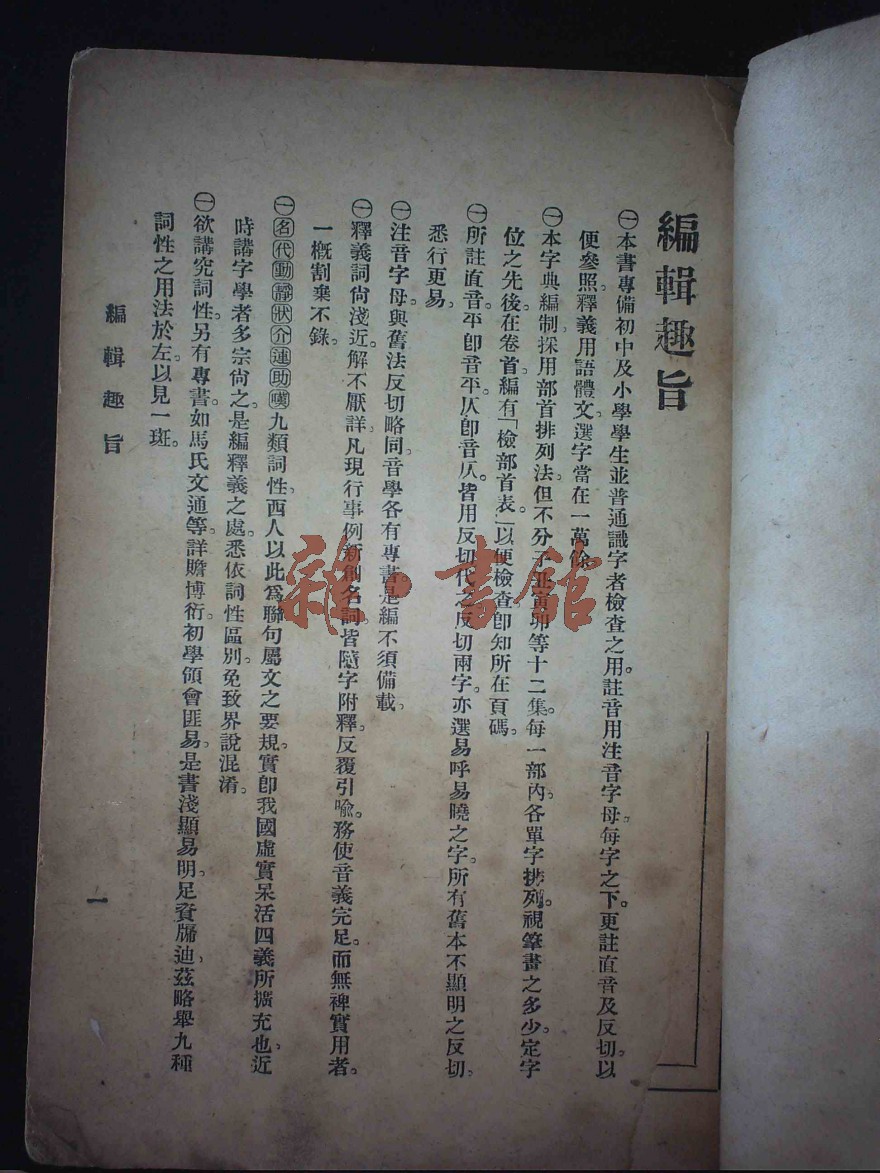 編輯趣旨
㊀本書專備初中及小學學生並普通識字者檢查之用。註音用注音字母。每字之下。更註直音及反切。以
便參照。釋義用語體文。選字當在一萬餘。
㊀本字典編制。採用部首排列法。但不分子丑寅卯等十二集。每一部內。各單字排列。視筆畫之多少。定字
位之先後。在卷首。編有「檢部首表」。以便檢查。卽知所在頁碼。
㊀所註直音。平卽音平。仄卽音仄。皆用反切代之。反切兩字。亦選易呼易曉之字。所有舊本不顯明之反切。
悉行更易。
㊀注音字母。與舊法反切略同。音學各有專書。是編不須備載。
㊀釋義詞尙淺近。解不厭詳。凡現行事例新創名詞。皆隨字附釋。反覆引喩。務使音義完足。而無裨實用者。
一槪割棄不錄。
㊀名代動靜狀介連助嘆九類詞性。西人以此爲聯句屬文之要規。實卽我國虛實呆活四義所擴充也。近
時講字學者多宗尙之。是編釋義之處。悉依詞性區別。免致界說混淆。
㊀欲講究詞性。另有專書。如馬氏文通等。詳贍博衍。初學領會匪易。是書淺顯易明。足資牖迪。茲略舉九種
詞性之用法於左。以見一斑。
編輯趣旨
一
雜·書館